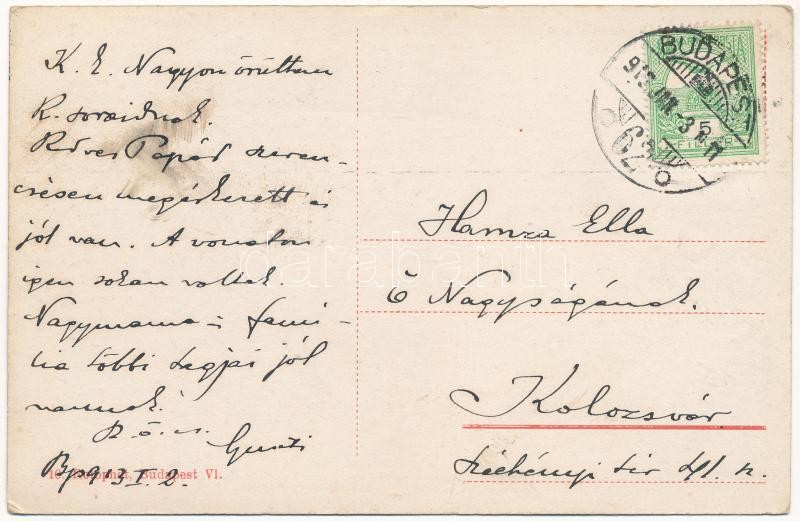 K. E. Nagyon örültem
K. soraidnak.
Kedves Papád szeren-
csésen megérkezett és
jól van. A vonaton
igen sokan voltak.
Nagymama és famí-
lia többi tagjai jól
vannak.
Guszti
Bp 913 I. 2.
Budapest VI.
BUDAPEST
62
5
FILLÉR
Hamza Ella
Ő Nagyságának
Kolozsvár
Széchényi tér 41. sz.
darabanth